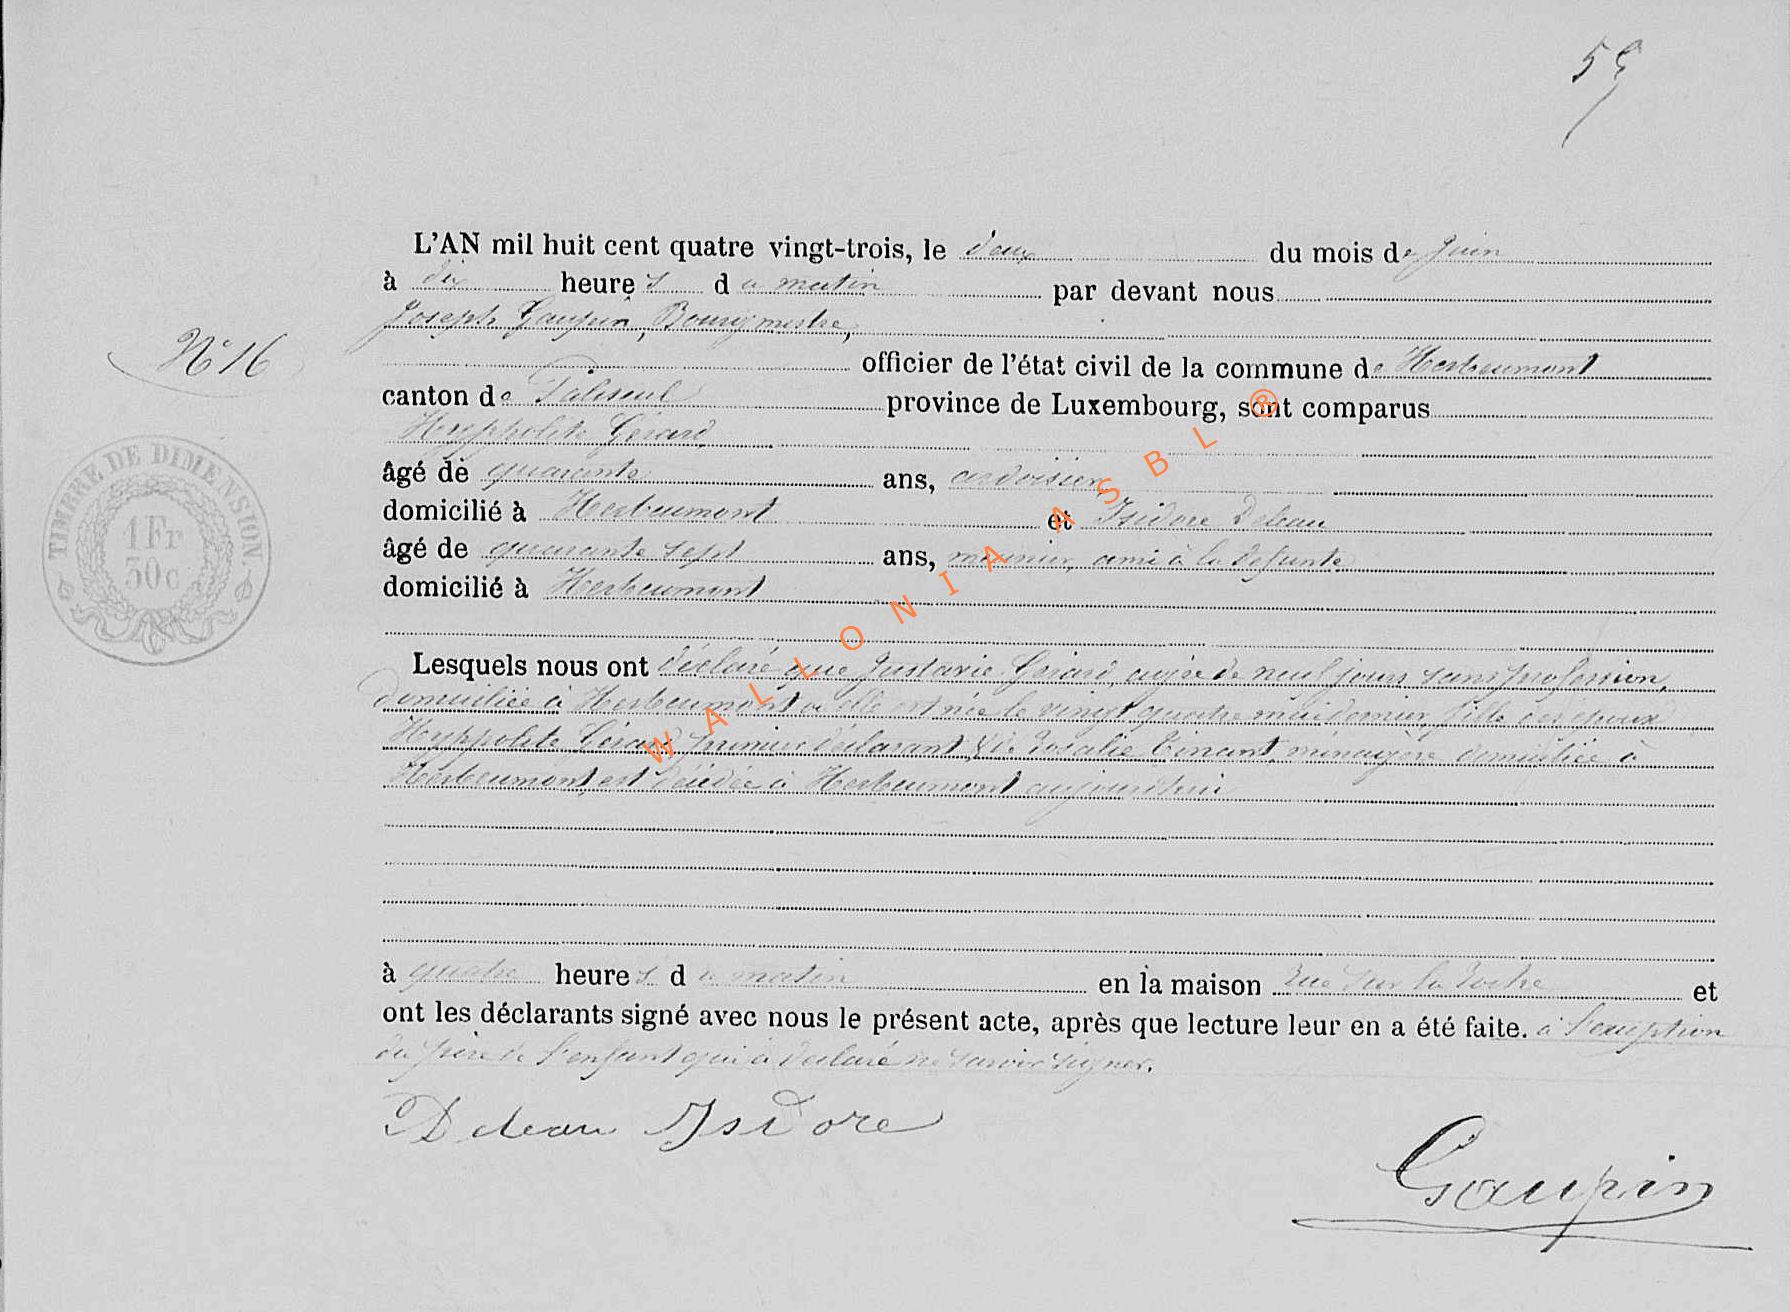 59
L'AN mil huit cent quatre vingt-trois, le deux du mois de Juin
à dix heures du matin par devant nous
Joseph Gaupin, Bourgmestre,
N° 16
officier de l'état civil de la commune de Herbeumont
canton de Paliseul province de Luxembourg, sont comparus
Hyppolite Gérard,
âgé de quarante ans, ardoisier,
domicilié à Herbeumont et Isidore Deleau
âgé de quarante sept ans, meunier, ami à la défunte
domicilié à Herbeumont
TIMBRE DE DIMENSION.
1 Fr
30 c
Lesquels nous ont déclaré que Justavie Gérard, agée de neuf jours, sans profession,
domiciliée à Herbeumont où elle est née le vingt quatre mai dernier, fille des époux
Hyppolite Gérard, premier déclarant, & de Rosalie Tinant, ménagère domiciliée à
Herbeumont, est décédée à Herbeumont aujourd'hui
à quatre heures du matin en la maison rue sur la Roche et
ont les déclarants signé avec nous le présent acte, après que lecture leur en a été faite. à l'exception
du père de l'enfant qui a déclaré ne savoir signer.
Deleau Isidore
Gaupin
WALLONIA ASBL ®